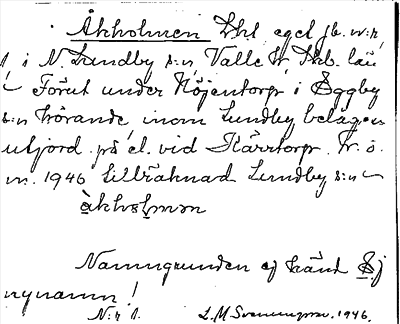 Åkholmen Lht, eget jb. n:r
1 i N. Lundby s:n, Valle hd, Skb. län
Förut under Höjentorp i Eggby
s:n hörande inom Lundby belägen
utjord på el. vid Kärrtorp. Fr. o.
m. 1946 tillräknad Lundby s:n
åkholmən
Namngrunden ej känd Ej
nynamn!
N:r 1. L. M. Svenungsson. 1946.